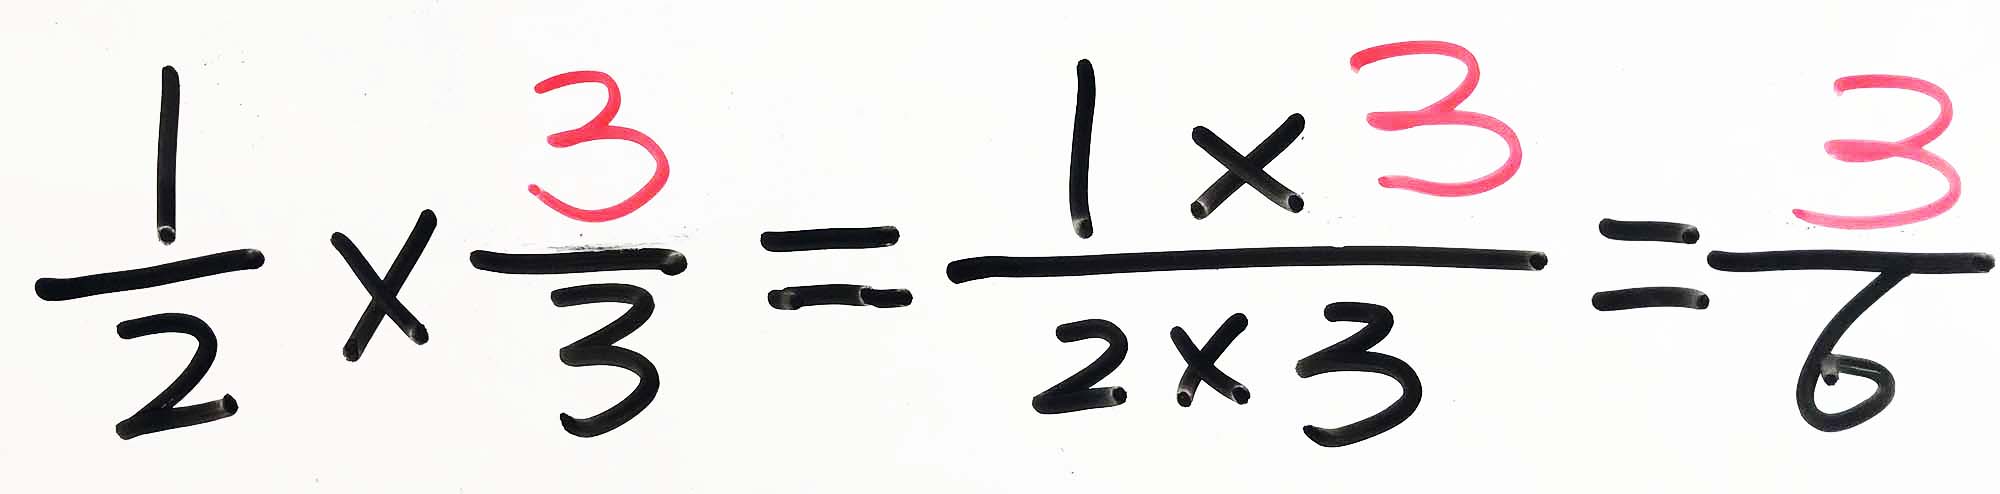 1/2 × 3/3 = (1 × 3)/(2 × 3) = 3/6